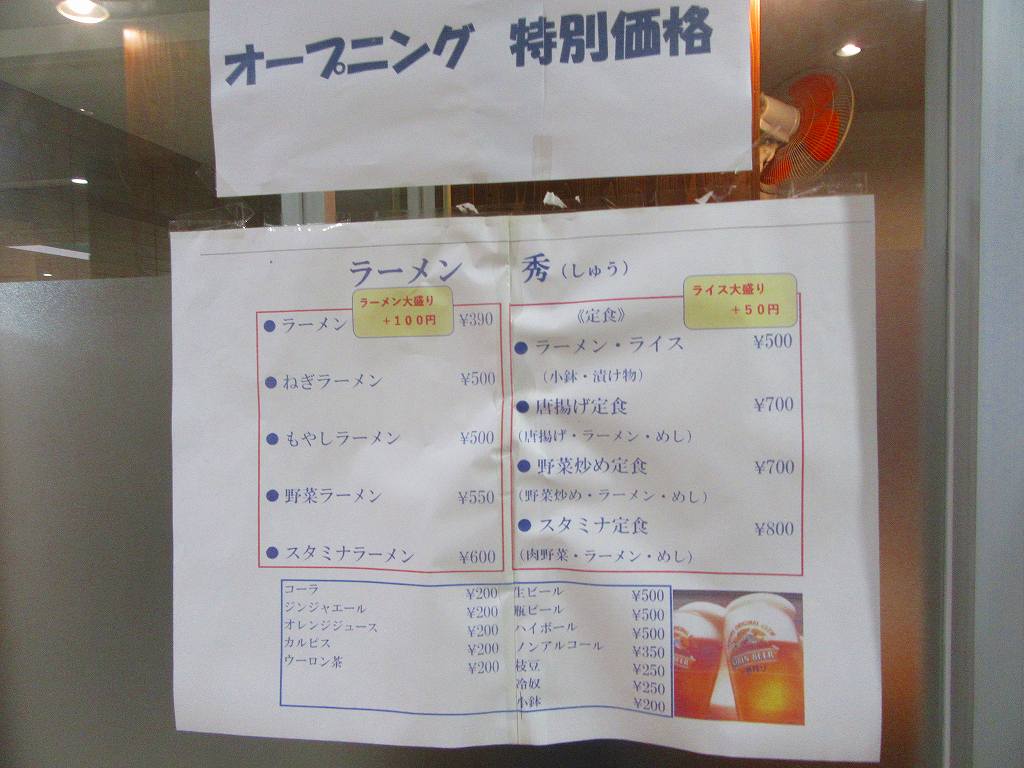 オープニング 特別価格
ラーメン 秀(しゅう)
ラーメン大盛り
+100円
●ラーメン ¥390
●ねぎラーメン ¥500
●もやしラーメン ¥500
●野菜ラーメン ¥550
●スタミナラーメン ¥600
ライス大盛り
+50円
《定食》
●ラーメン・ライス ¥500
(小鉢・漬け物)
●唐揚げ定食 ¥700
(唐揚げ・ラーメン・めし)
●野菜炒め定食 ¥700
(野菜炒め・ラーメン・めし)
●スタミナ定食 ¥800
(肉野菜・ラーメン・めし)
コーラ ¥200
ジンジャエール ¥200
オレンジジュース ¥200
カルピス ¥200
ウーロン茶 ¥200
生ビール ¥500
瓶ビール ¥500
ハイボール ¥500
ノンアルコール ¥350
枝豆 ¥250
冷奴 ¥250
小鉢 ¥200